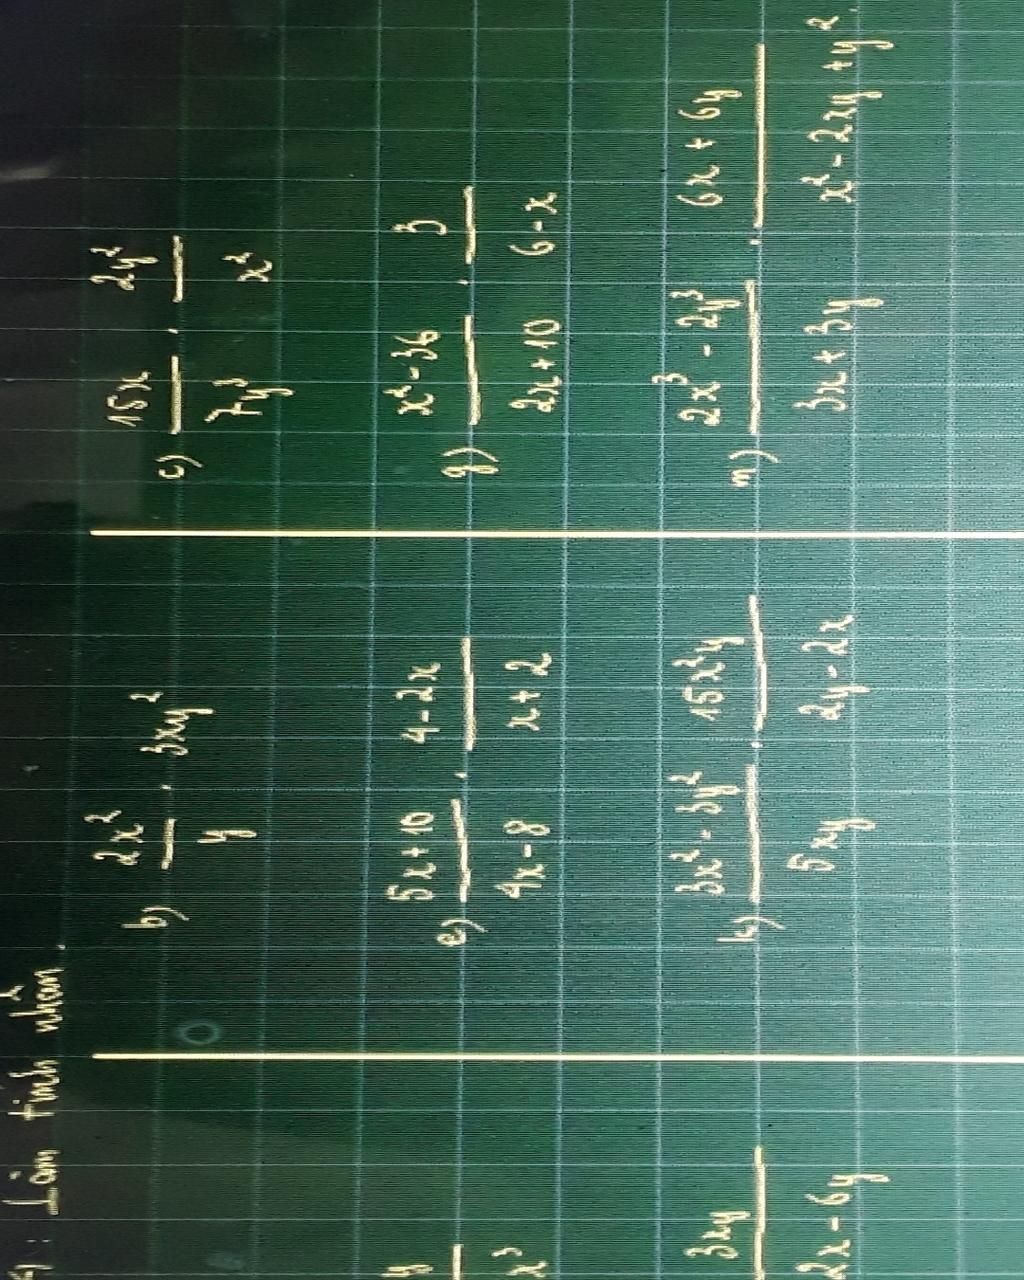 Làm tính nhân.
b) 2x²/y . 3xy²
c) 15x/7y³ . 2y²/x²
y
x³
e) 5x+10/4x-8 . 4-2x/x+2
g) x²-36/2x+10 . 3/6-x
3xy
2x-6y
k) 3x²-3y²/5xy . 15x²y/2y-2x
m) 2x³-2y³/3x+3y . 6x+6y/x²-2xy+y²